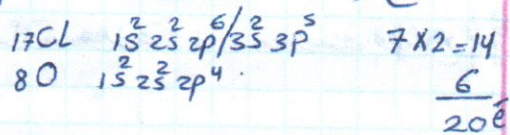 17CL 1s² 2s² 2p⁶/3s² 3p⁵ 7×2=14
8O 1s² 2s² 2p⁴. 6
20é